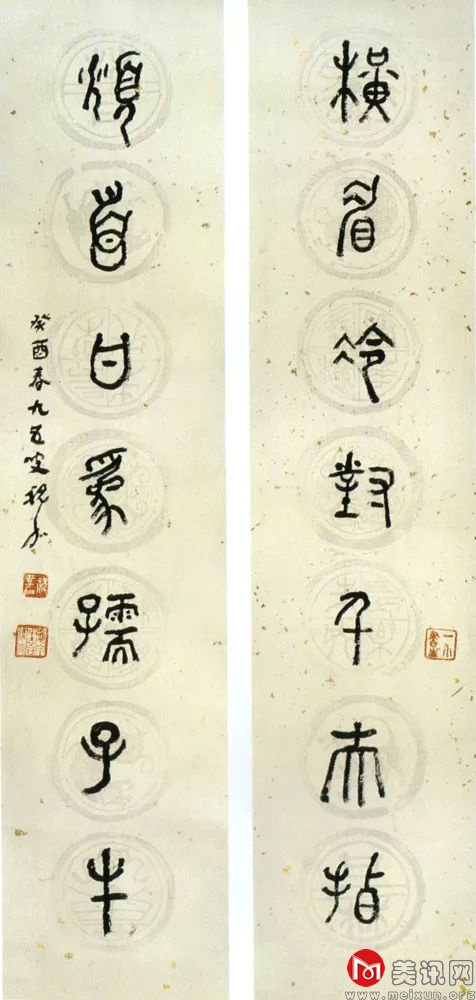 橫眉冷對千夫指
頫首甘爲孺子牛
癸酉春九五叟祝嘉
M 美讯网
www.meixun.org